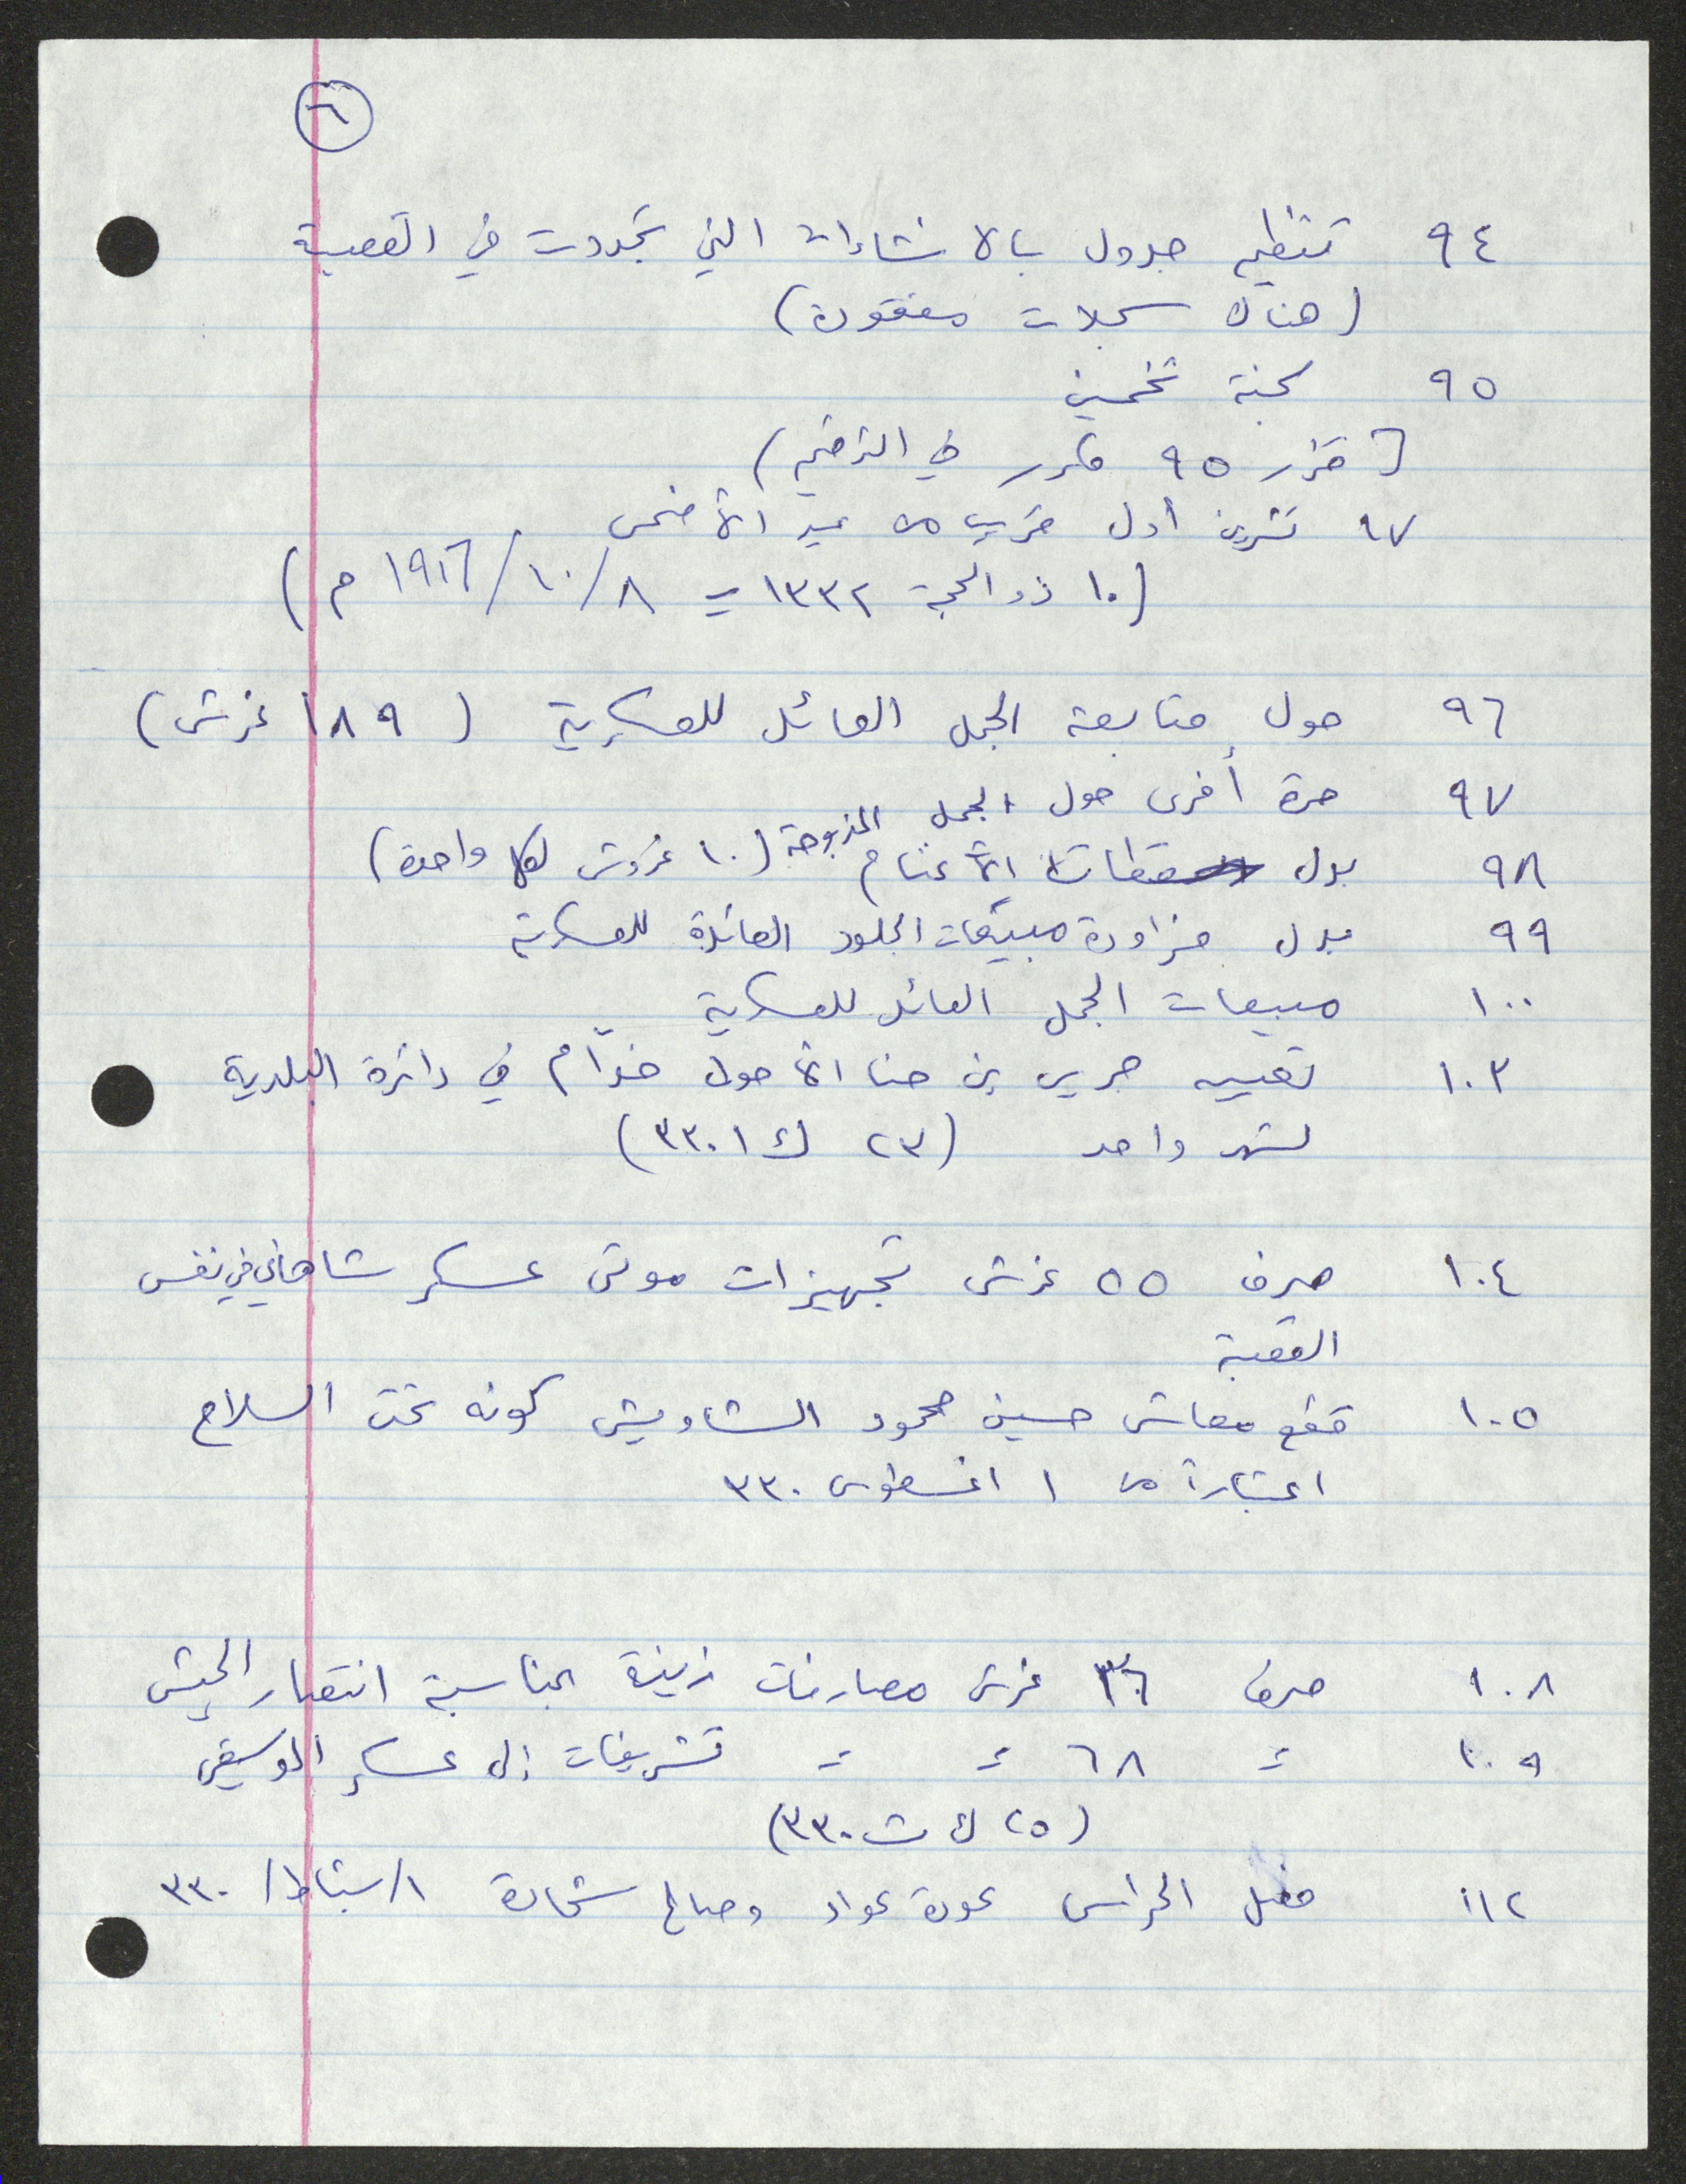 ٦
٩٤ تنظيم جدول بالانشاءات التي تجددت في القصبة
(هناك سجلات مفقودة)
٩٥ لجنة تخمين
[قرار ٩٥ مكرر في الترقيم)
١٧ تشرين أول قريب من عيد الأضحى
(١٠ ذو الحجة ١٣٣٢ = ٨/١٠/١٩١٦ م)
٩٦ حول متابعة الجمل العائل للعسكرية (١٨٩ غرش)
٩٧ مرة أخرى حول الجمل
٩٨ بدل سقطات الأغنام المذبوحة (١٠ غروش لكل واحدة)
٩٩ بدل مزاودة مبيعات الجلود العائدة للعسكرية
١٠٠ مبيعات الجمل العائل للعسكرية
١٠٣ تعيين جريس بن حنا الأحول خدّام في دائرة البلدية
لشهر واحد (٢٣ ك ١ ٣٣٠)
١٠٤ صرف ٥٥ غرش تجهيزات موتى عسكر شاهاني في نفس
القصبة
١٠٥ قطع معاش حسين محمود الشاويش كونه تحت السلاح
اعتباراً من ١ اغسطوس ٣٣٠
١٠٨ صرف ٣٦ غرش مصارفات زينة بمناسبة انتصار الجيش
١٠٩ = ٦٨ = = تشريفات إلى عسكر الموسيقى
(٢٥ ك ث ٣٣٠)
١١٢ فصل الحراس عودة عواد وصالح شحادة ١/شباط/٣٣٠